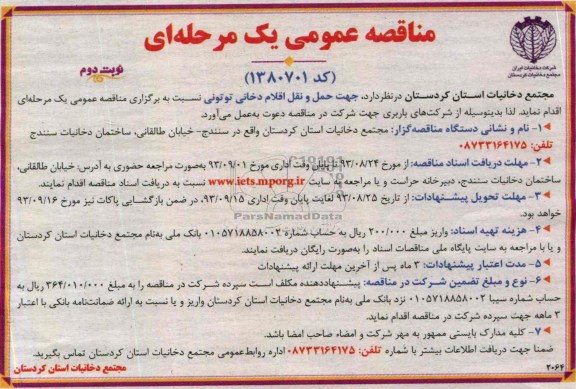 شرکت دخانیات ایران
مجتمع دخانیات کردستان
مناقصه عمومی یک مرحله‌ای
نوبت دوم
(کد ۱۳۸۰۷۰۱)
مجتمع دخانیات استان کردستان درنظردارد، جهت حمل و نقل اقلام دخانی توتونی نسبت به برگزاری مناقصه عمومی یک مرحله‌ای
اقدام نماید. لذا بدینوسیله از شرکت‌های باربری جهت شرکت در مناقصه دعوت به‌عمل می‌آورد.
۱- نام و نشانی دستگاه مناقصه‌گزار: مجتمع دخانیات استان کردستان واقع در سنندج- خیابان طالقانی، ساختمان دخانیات سنندج
تلفن: ۰۸۷۳۳۱۶۴۱۷۵
۲- مهلت دریافت اسناد مناقصه: از مورخ ۹۳/۰۸/۲۴ تا پایان وقت اداری مورخ ۹۳/۰۹/۰۱ به‌صورت مراجعه حضوری به آدرس: خیابان طالقانی،
ساختمان دخانیات سنندج، دبیرخانه حراست و یا مراجعه به سایت www.iets.mporg.ir نسبت به دریافت اسناد مناقصه اقدام نمایند.
۳- مهلت تحویل پیشنهادات: از تاریخ ۹۳/۰۸/۲۵ لغایت پایان وقت اداری ۹۳/۰۹/۱۵، در ضمن بازگشایی پاکات نیز مورخ ۹۳/۰۹/۱۶
خواهد بود.
ParsNamadData
۴- هزینه تهیه اسناد: واریز مبلغ ۲۰۰/۰۰۰ ریال به حساب شماره ۰۱۰۵۷۱۸۸۵۸۰۰۲ بانک ملی به‌نام مجتمع دخانیات استان کردستان
و یا با مراجعه به سایت پایگاه ملی مناقصات اسناد را به‌صورت رایگان دریافت نمایند.
۵- مدت اعتبار پیشنهادات: ۳ ماه پس از آخرین مهلت ارائه پیشنهادات
۶- نوع و مبلغ تضمین شرکت در مناقصه: پیشنهاددهنده مکلف است سپرده شرکت در مناقصه را به مبلغ ۳۶۴/۰۱۰/۰۰۰ ریال به
حساب شماره سیبا ۰۱۰۵۷۱۸۸۵۸۰۰۲ نزد بانک ملی به‌نام مجتمع دخانیات استان کردستان واریز و یا نسبت به ارائه ضمانت‌نامه بانکی با اعتبار
۳ ماهه جهت سپرده شرکت در مناقصه اقدام نماید.
۷- کلیه مدارک بایستی ممهور به مهر شرکت و امضاء صاحب امضا باشد.
ضمنا جهت دریافت اطلاعات بیشتر با شماره تلفن: ۰۸۷۳۳۱۶۴۱۷۵ اداره روابط‌عمومی مجتمع دخانیات استان کردستان تماس بگیرید.
مجتمع دخانیات استان کردستان
۲۰۶۴